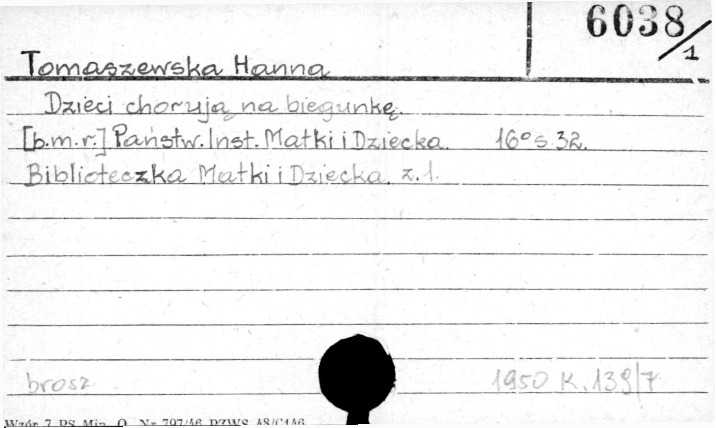 6038/1
Tomaszewska Hanna
Dzieci chorują na biegunkę.
[b.m.r.] Państw. Inst. Matki i Dziecka. 16° s 32.
Biblioteczka Matki i Dziecka. z. 1.
brosz 1950 K. 139/7
Wzór 7 PS Min. O. Nr 797/46 PZWS